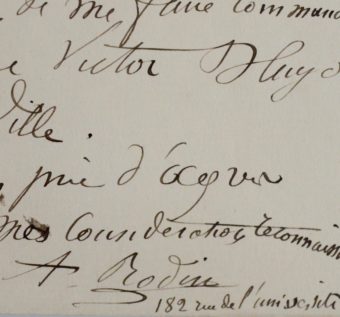 de me faire comman
Victor Hugo
Ville.
prie d'agrer
mes Consideration reconnaiss
A. Rodin
182 rue de l'université